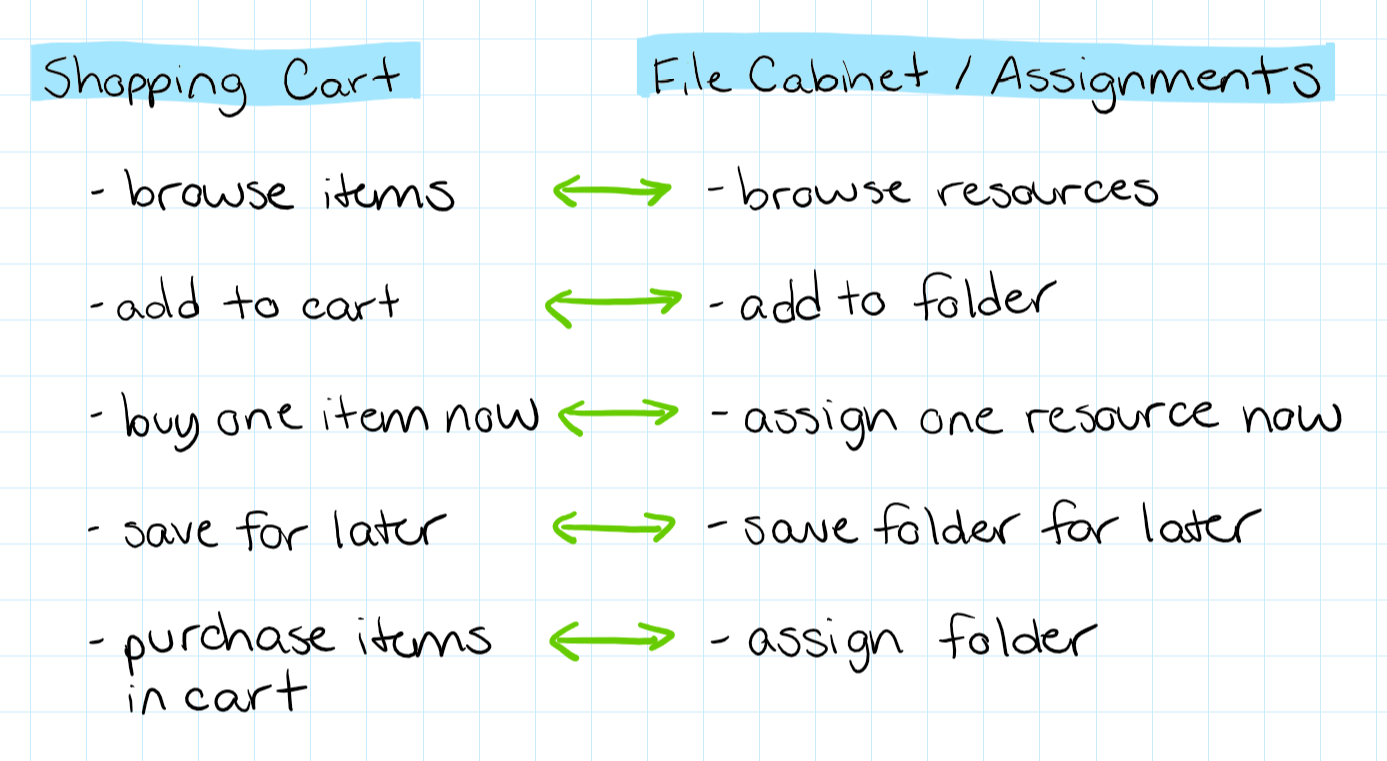 Shopping Cart
File Cabinet / Assignments
- browse items
- browse resources
- add to cart
- add to folder
- buy one item now
- assign one resource now
- save for later
- save folder for later
- purchase items
in cart
- assign folder